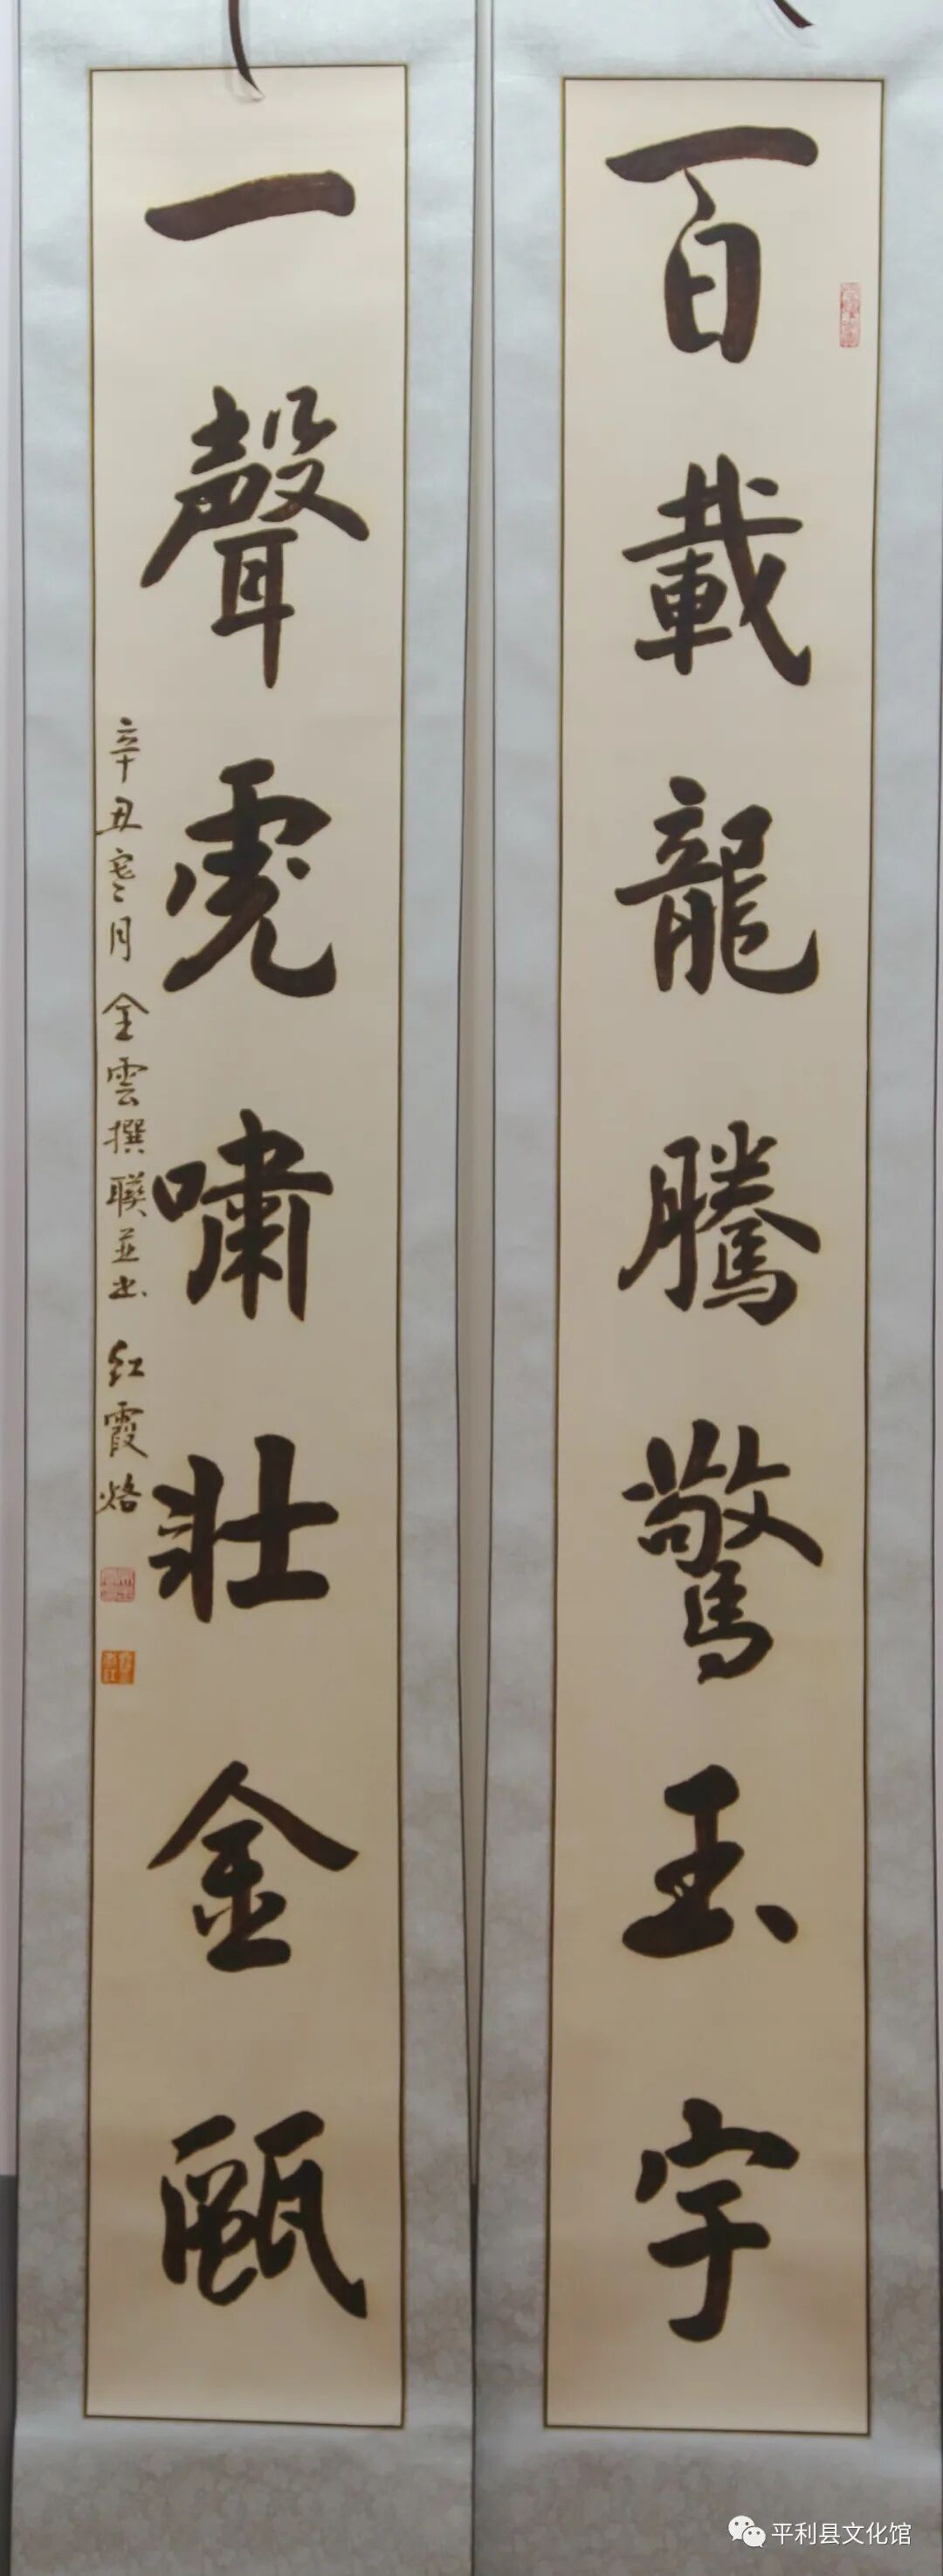 百載龍騰驚玉宇
一聲虎嘯壯金甌
辛丑寒月 金雲撰聯並书 红霞烙
平利县文化馆